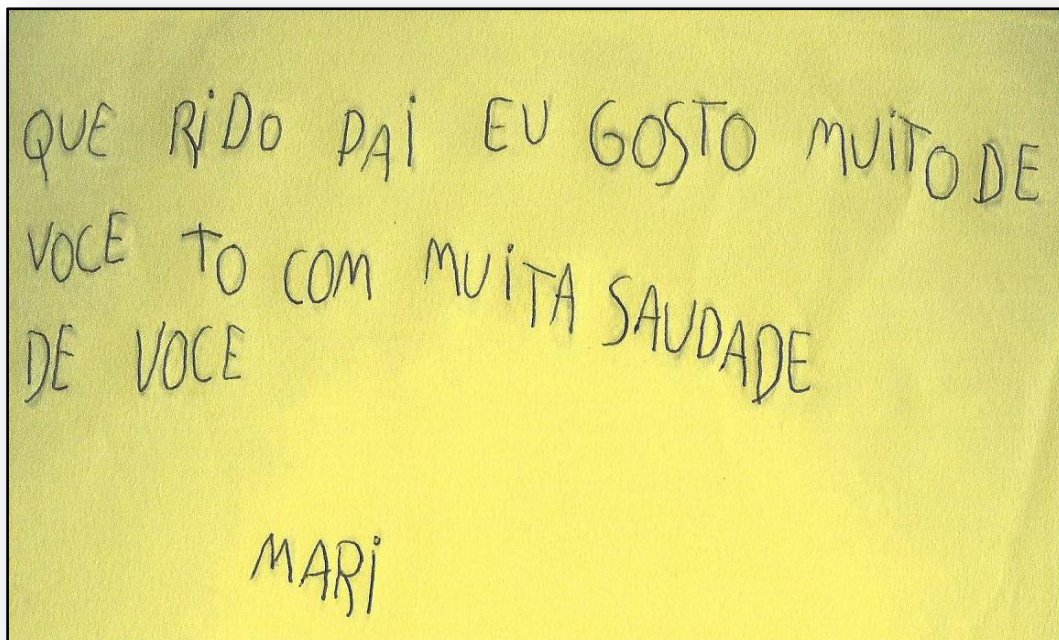 QUE RiDO PAi EU GOSTO MUiTO DE
VOCE TO COM MUiTA SAUDADE
DE VOCE
MARi